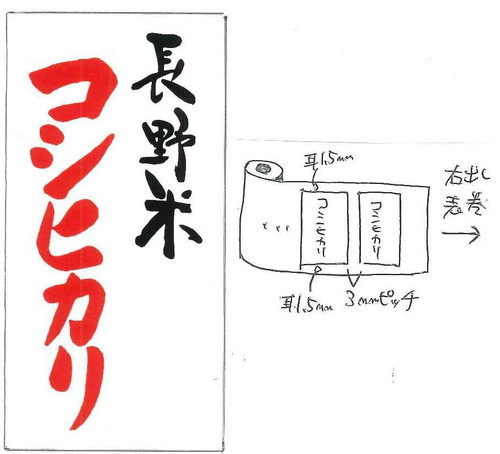 長野米
コシヒカリ
耳1.5mm
コシヒカリ
コシヒカリ
耳1.5mm
3mmピッチ
右出し
表巻